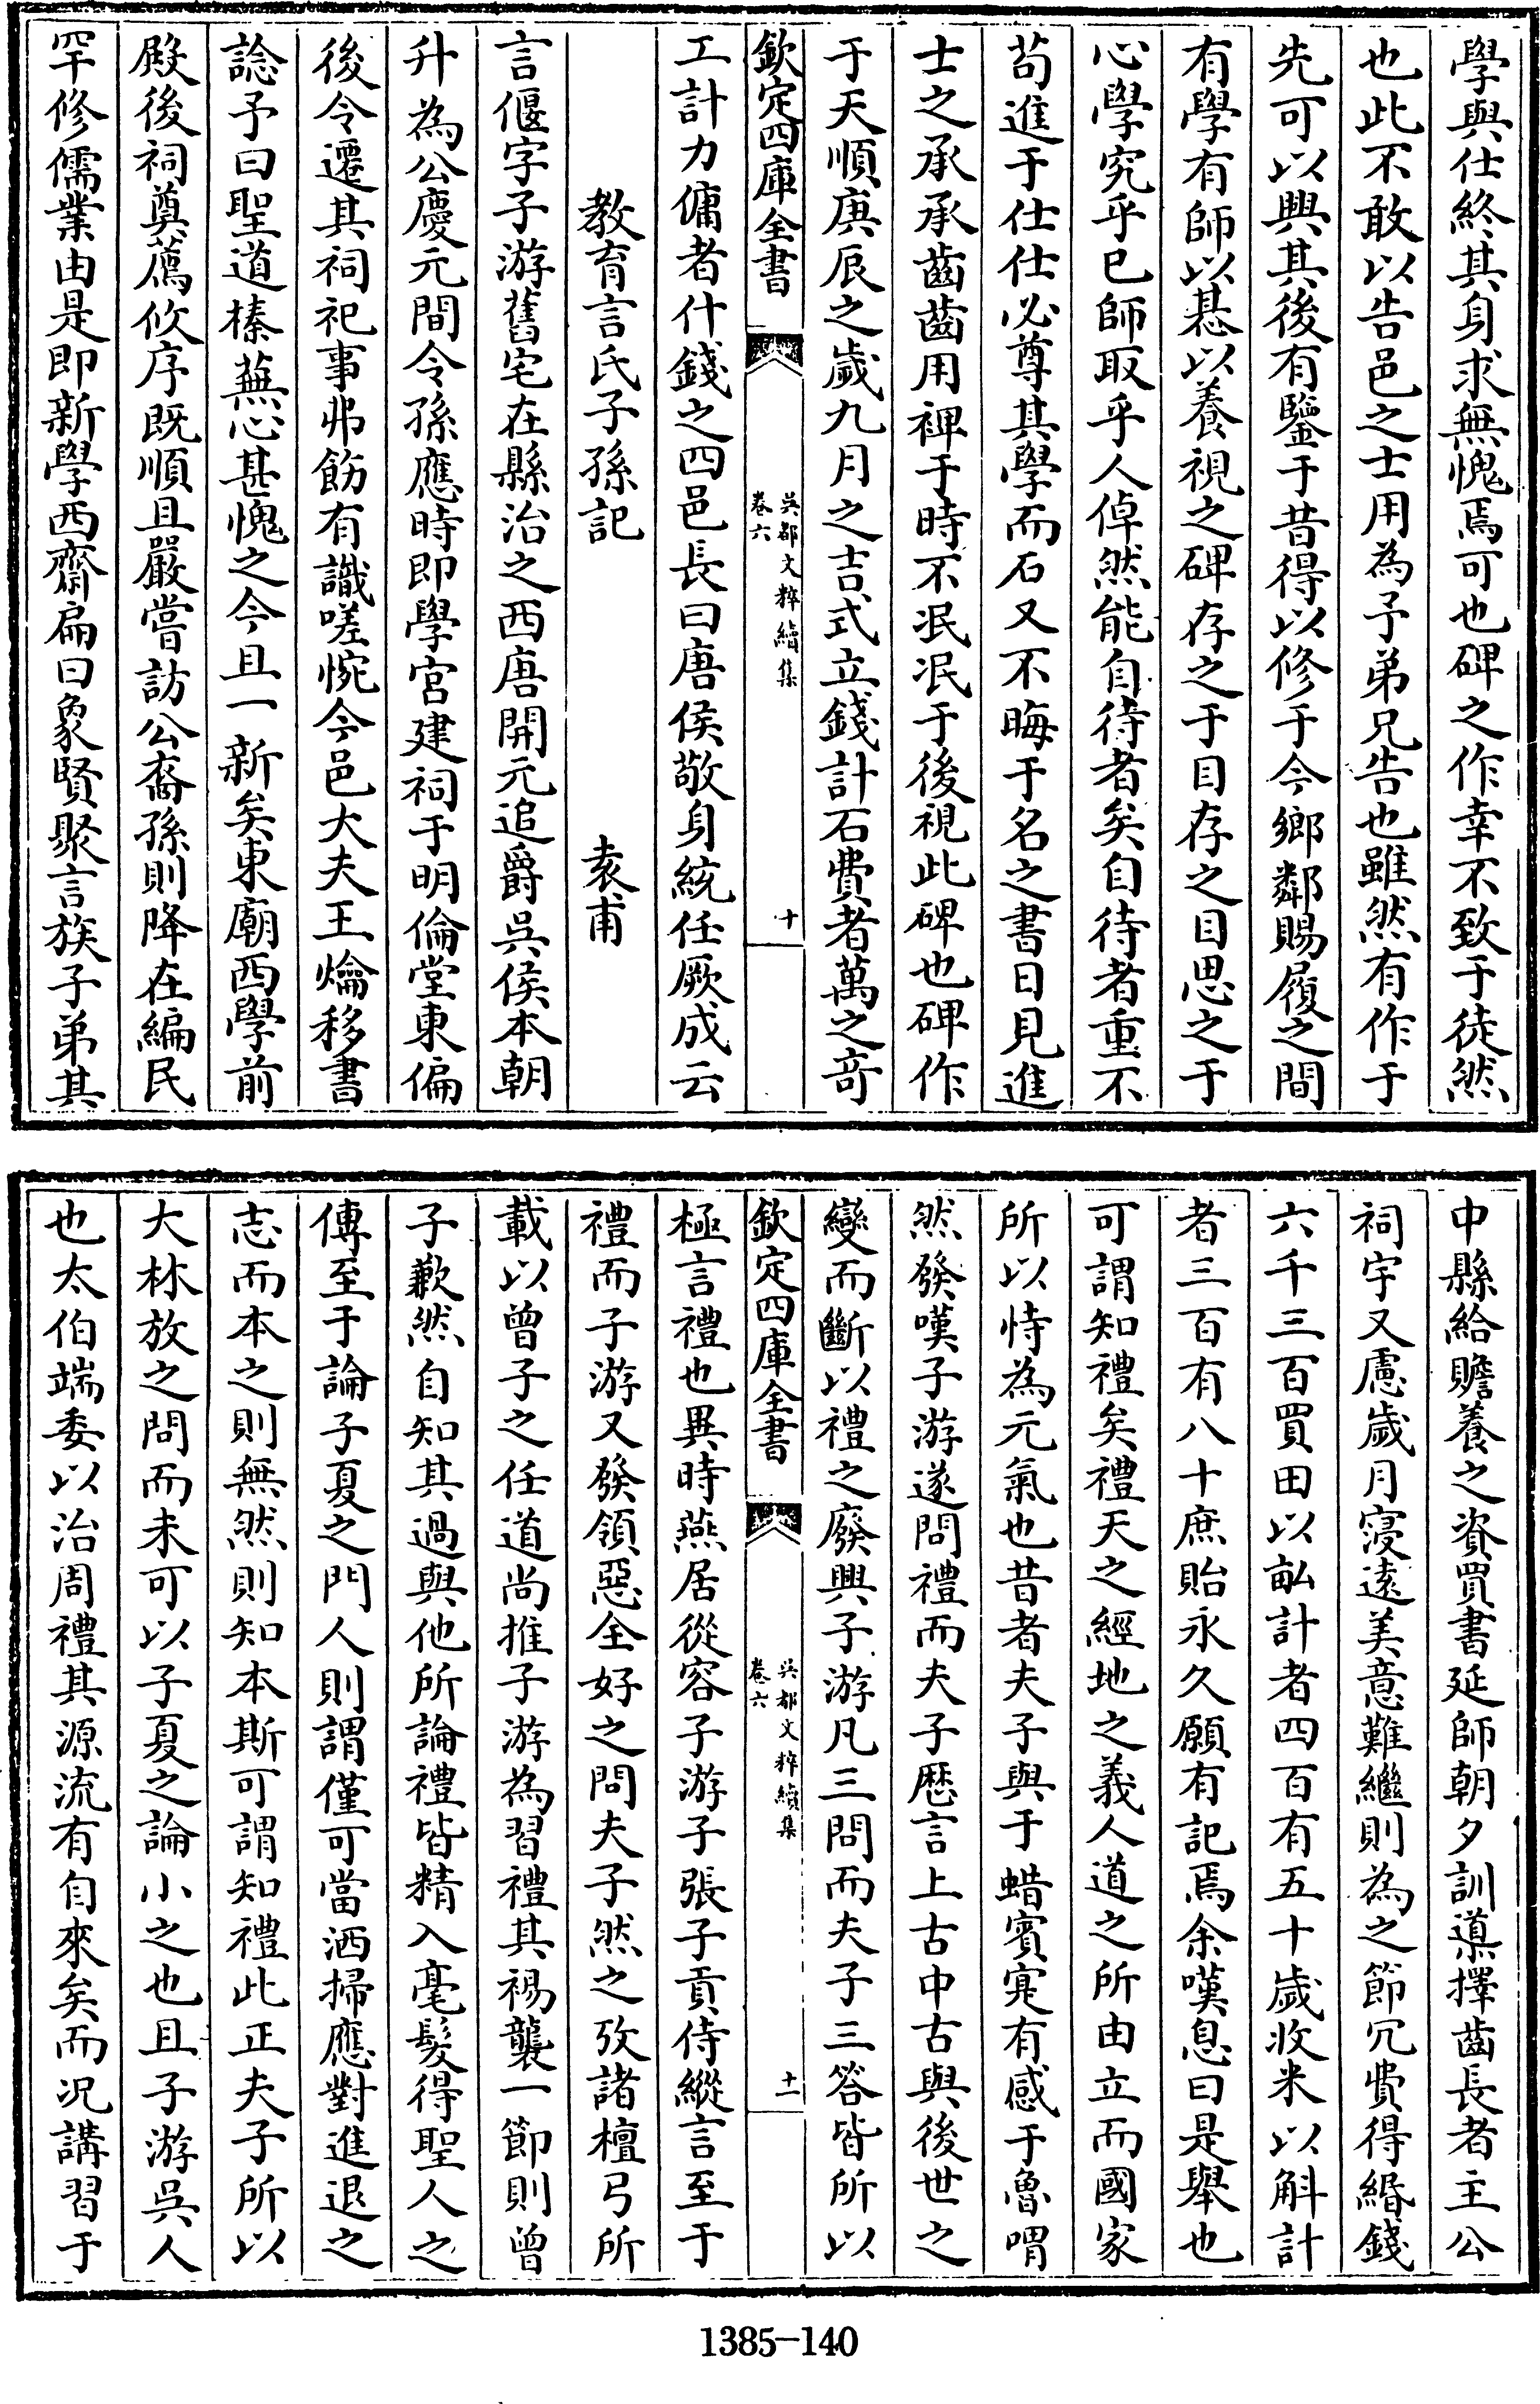 學與仕終其身求無愧焉可也碑之作幸不致于徒然
也此不敢以告邑之士用為予弟兄告也雖然有作于
先可以興其後有鑒于昔得以修于今鄉鄰賜履之間
有學有師以惎以養視之碑存之于目存之目思之于
心學究乎已師取乎人倬然能自待者矣自待者重不
苟進于仕仕必尊其學而石又不晦于名之書日見進
士之承承齒齒用裨于時不泯泯于後視此碑也碑作
于天順庚辰之歲九月之吉式立錢計石費者萬之竒
欽定四庫全書
吳都文粹續集
卷六
十
工計力傭者什錢之四邑長曰唐侯敬身統任厥成云
教育言氏子孫記
袁甫
言偃字子游舊宅在縣治之西唐開元追爵吳侯本朝
升為公慶元間令孫應時即學宮建祠于明倫堂東偏
後令遷其祠祀事弗飭有識嗟惋今邑大夫王爚移書
諗予曰聖道榛蕪心甚愧之今且一新矣東廟西學前
殿後祠奠薦攸序既順且嚴嘗訪公裔孫則降在編民
罕修儒業由是即新學西齋扁曰象賢聚言族子弟其
中縣給贍養之資買書延師朝夕訓䆃擇齒長者主公
祠宇又慮歲月寖遠美意難繼則為之節冗費得緡錢
六千三百買田以畝計者四百有五十歲收米以斛計
者三百有八十庶貽永久願有記焉余嘆息曰是舉也
可謂知禮矣禮天之經地之義人道之所由立而國家
所以恃為元氣也昔者夫子與于蜡賓寔有感于魯喟
然發嘆子游遂問禮而夫子歴言上古中古與後世之
變而斷以禮之廢興子游凡三問而夫子三答皆所以
欽定四庫全書
吳都文粹續集
卷六
十一
極言禮也異時燕居從容子游子張子貢侍縱言至于
禮而子游又發領惡全好之問夫子然之攷諸檀弓所
載以曾子之任道尚推子游為習禮其裼襲一節則曾
子歉然自知其過與他所論禮皆精入毫髮得聖人之
傳至于論子夏之門人則謂僅可當洒掃應對進退之
志而本之則無然則知本斯可謂知禮此正夫子所以
大林放之問而未可以子夏之論小之也且子游吳人
也太伯端委以治周禮其源流有自來矣而况講習于
1385-140